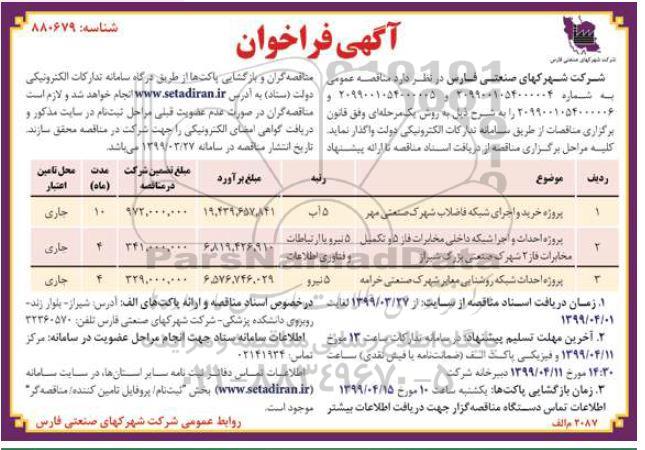 شناسه: ۸۸۰۶۷۹
آگهی فراخوان
شرکت شهرکهای صنعتی فارس
شرکت شهرکهای صنعتی فارس در نظر دارد مناقصه عمومی
به شماره ۲۰۹۹۰۰۱۰۵۴۰۰۰۰۰۴ و ۲۰۹۹۰۰۱۰۵۴۰۰۰۰۰۵ و ۲۰۹۹۰۰
۱۰۵۴۰۰۰۰۰۶ را به شرح ذیل به روش یک‌مرحله‌ای وفق قانون
برگزاری مناقصات از طریق سامانه تدارکات الکترونیکی دولت واگذار نماید.
کلیه مراحل برگزاری مناقصه از دریافت اسناد مناقصه تا ارائه پیشنهاد
مناقصه‌گران و بازگشایی پاکت‌ها از طریق درگاه سامانه تدارکات الکترونیکی
دولت (ستاد) به آدرس www.setadiran.ir انجام خواهد شد و لازم است
مناقصه‌گران در صورت عدم عضویت قبلی مراحل ثبت‌نام در سایت مذکور و
دریافت گواهی امضای الکترونیکی را جهت شرکت در مناقصه محقق سازند.
تاریخ انتشار مناقصه در سامانه ۱۳۹۹/۰۳/۲۷ می‌باشد.
ردیف موضوع رتبه مبلغ برآورد مبلغ تضمین شرکت در مناقصه مدت (ماه) محل تامین اعتبار
۱ پروژه خرید و اجرای شبکه فاضلاب شهرک صنعتی مهر ۵ آب ۱۹,۴۳۹,۶۵۷,۸۴۱ ۹۷۲,۰۰۰,۰۰۰ ۱۰ جاری
۲ پروژه احداث و اجرا شبکه داخلی مخابرات فاز ۵ و تکمیل مخابرات فاز ۲ شهرک صنعتی بزرگ شیراز ۵ نیرو یا ارتباطات و فناوری اطلاعات ۶,۸۱۹,۴۲۶,۹۱۰ ۳۴۱,۰۰۰,۰۰۰ ۴ جاری
۳ پروژه احداث شبکه روشنایی معابر شهرک صنعتی خرامه ۵ نیرو ۶,۵۷۶,۷۴۶,۰۲۹ ۳۲۹,۰۰۰,۰۰۰ ۴ جاری
۱. زمان دریافت اسناد مناقصه از سایت: از ۱۳۹۹/۰۳/۲۷ لغایت
۱۳۹۹/۰۴/۰۱
۲. آخرین مهلت تسلیم پیشنهاد: در سامانه تدارکات ساعت ۱۳ مورخ
۱۳۹۹/۰۴/۱۱ و فیزیکی پاکت الف (ضمانت‌نامه یا فیش نقدی) ساعت
۱۴:۳۰ مورخ ۱۳۹۹/۰۴/۱۱ دبیرخانه شرکت
۳. زمان بازگشایی پاکت‌ها: یکشنبه ساعت ۱۰ مورخ ۱۳۹۹/۰۴/۱۵
اطلاعات تماس دستگاه مناقصه‌گزار جهت دریافت اطلاعات بیشتر
درخصوص اسناد مناقصه و ارائه پاکت‌های الف: آدرس: شیراز- بلوار زند-
روبروی دانشکده پزشکی- شرکت شهرکهای صنعتی فارس تلفن: ۳۲۳۶۰۵۷۰
اطلاعات سامانه ستاد جهت انجام مراحل عضویت در سامانه: مرکز
تماس: ۰۲۱۴۱۹۳۴
اطلاعات تماس دفاتر ثبت نامه سایر استان‌ها، در سایت سامانه
(www.setadiran.ir) بخش "ثبت‌نام/ پروفایل تامین کننده/ مناقصه‌گر"
موجود است.
۲۰۸۷ م‌الف
روابط عمومی شرکت شهرکهای صنعتی فارس
ParsNamadData
۰۲۱-۸۸۳۴۹۶۷۰-۵